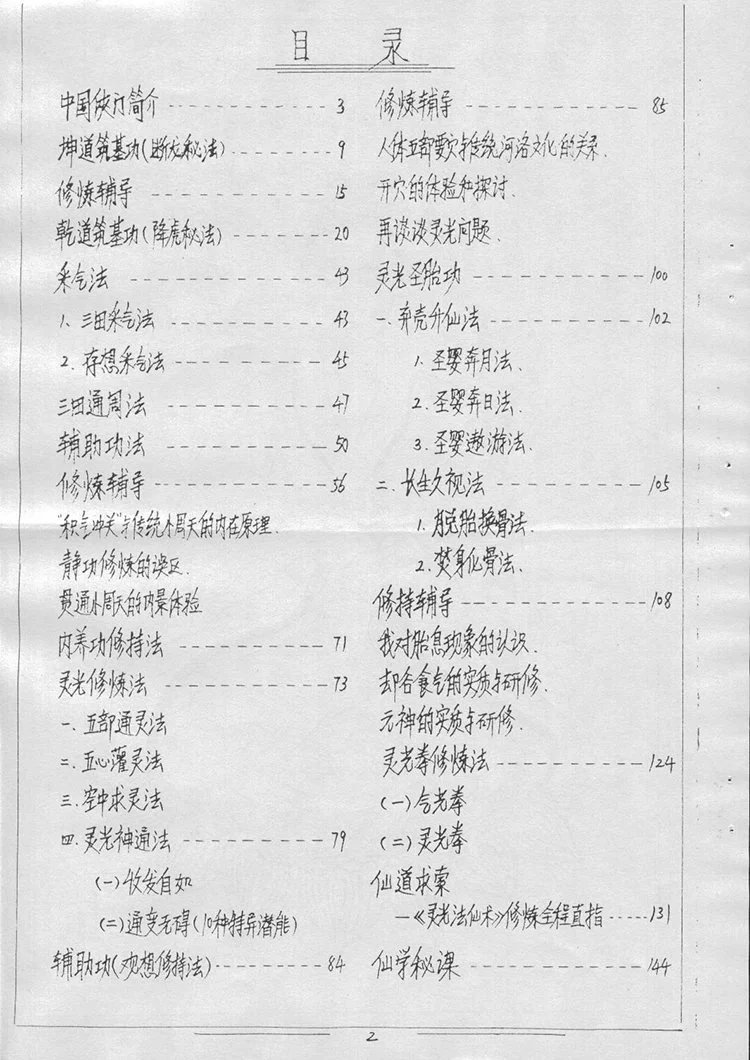 目 录
中国侠门简介 ---------- 3
坤道筑基功(断龙秘法) ------ 9
修炼辅导 ---------- 15
乾道筑基功(降虎秘法) ------ 20
采气法 ---------- 43
1. 三田采气法 ---------- 43
2. 存想采气法 ---------- 45
三田通周法 ---------- 47
辅助功法 ---------- 50
修炼辅导 ---------- 56
“积气冲关”与传统小周天的内在原理.
静功修炼的误区.
贯通小周天的内景体验
内养功修持法 ---------- 71
灵光修炼法 ---------- 73
一. 五部通灵法
二. 五心灌灵法
三. 空中求灵法
四. 灵光神通法 ---------- 79
(一) 收发自如
(二) 通变无碍(10种特异潜能)
辅助功(观想修持法) -------- 84
修炼辅导 ---------- 85
人体五部窍穴与传统河洛文化的关系.
开穴的体验和探讨.
再谈谈灵光问题.
灵光圣胎功 ---------- 100
一. 弃壳升仙法 ---------- 102
1. 圣婴奔月法.
2. 圣婴奔日法.
3. 圣婴遨游法.
二. 长生久视法 ---------- 105
1. 脱胎换骨法.
2. 焚身化骨法.
修持辅导 ---------- 108
我对胎息现象的认识.
却谷食气的实质与研修.
元神的实质与研修.
灵光拳修炼法 ---------- 124
(一) 气光拳
(二) 灵光拳
仙道求索
—《灵光法仙术》修炼全程直指 ----- 131
仙学秘课 ---------- 144
2